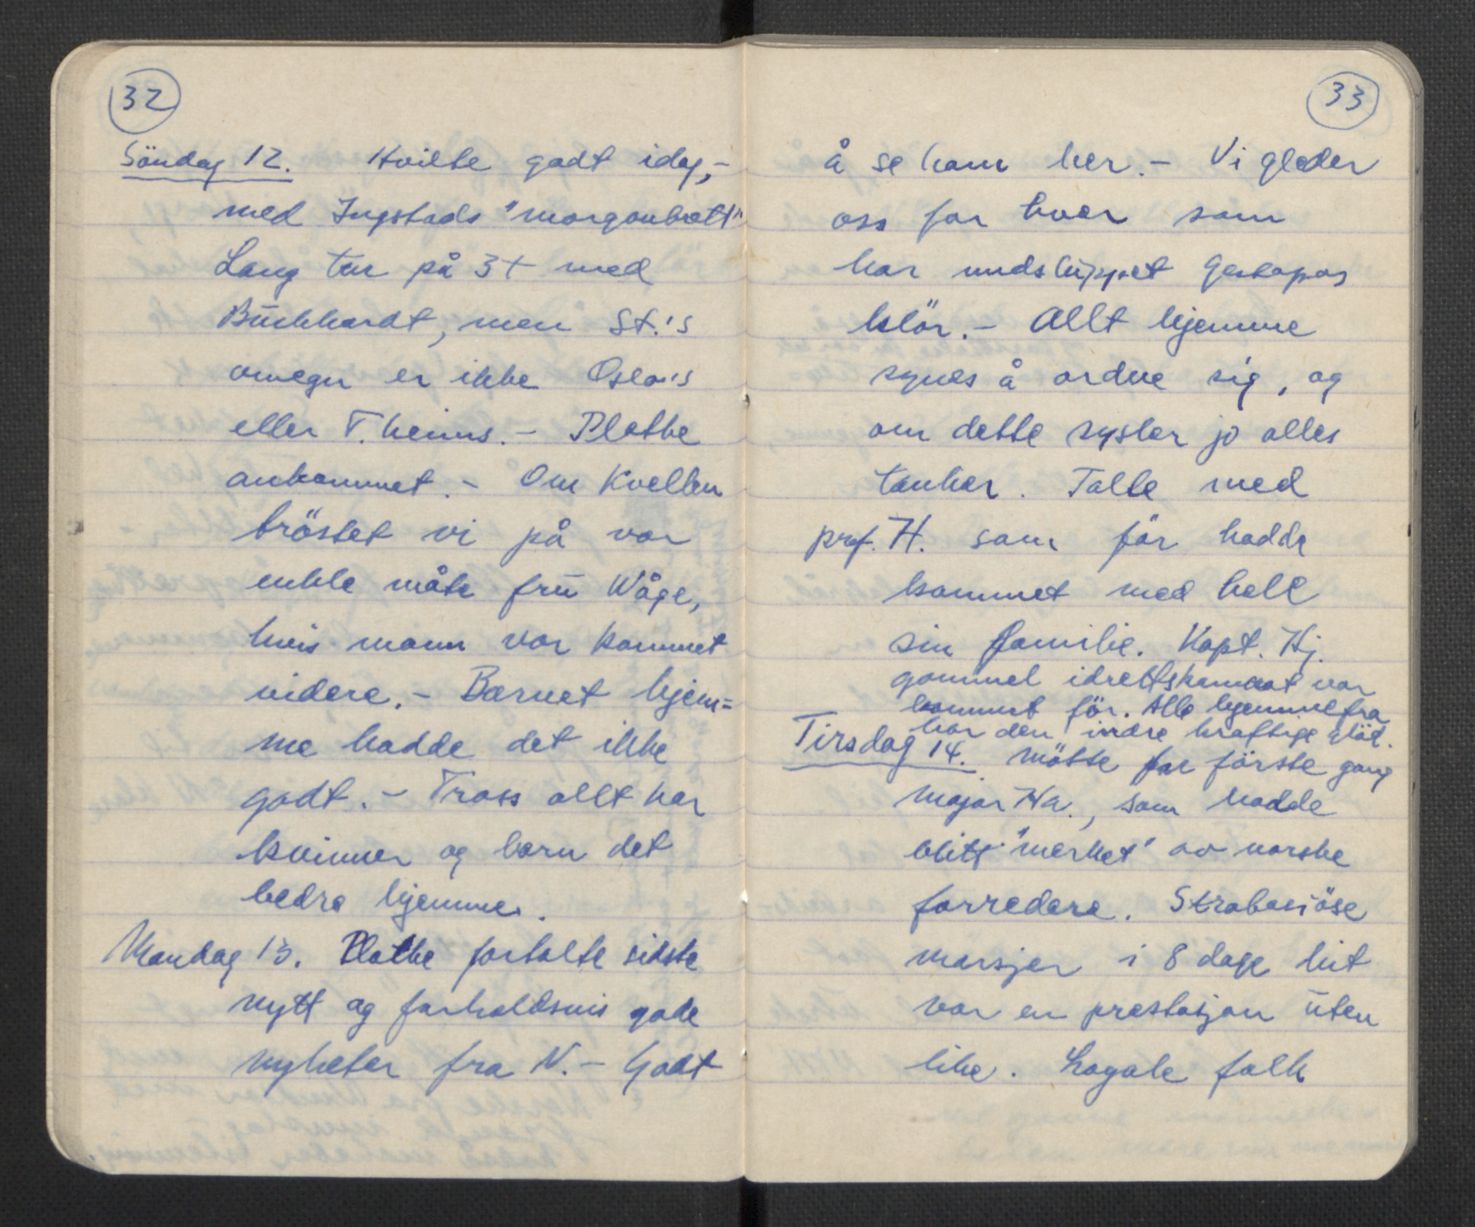 32
Söndag 12. Hvilte godt idag,-
med Ingstads "morgonbrett"
Lang tur på 3t med
Burkhardt, men St.'s
omegn er ikke Oslo's
eller T.heims. - Plathe
ankommet. - Om Kvelden
tröstet vi på vor
enkle måte fru Wåge,
hvis mann var kommet
videre. - Barnet hjem=
me hadde det ikke
godt. - Tross allt har
kvinner og barn det
bedre hjemme.
Mandag 13. Plathe fortalte sidste
nytt og forholdsvis gode
nyheter fra N. - Godt
33
å se ham her. - Vi gleder
oss for hver som
har undsluppet Gestapos
klör. - Allt hjemme
synes å ordne sig, og
om dette sysler jo alles
tanker. Talte med
prof. H. som før hadde
kommet med hele
sin familie. Kapt. Hj.
gammel idrettskamerat var
kommet för. Alle hjemmefra
har den indre kraftige glöd.
Tirsdag 14. Mötte for förste gang
major Ha., som hadde
blitt "merket" av norske
forredere. Strabasiöse
marsjer i 8 dage hit
var en prestasjon uten
like. Logale folk